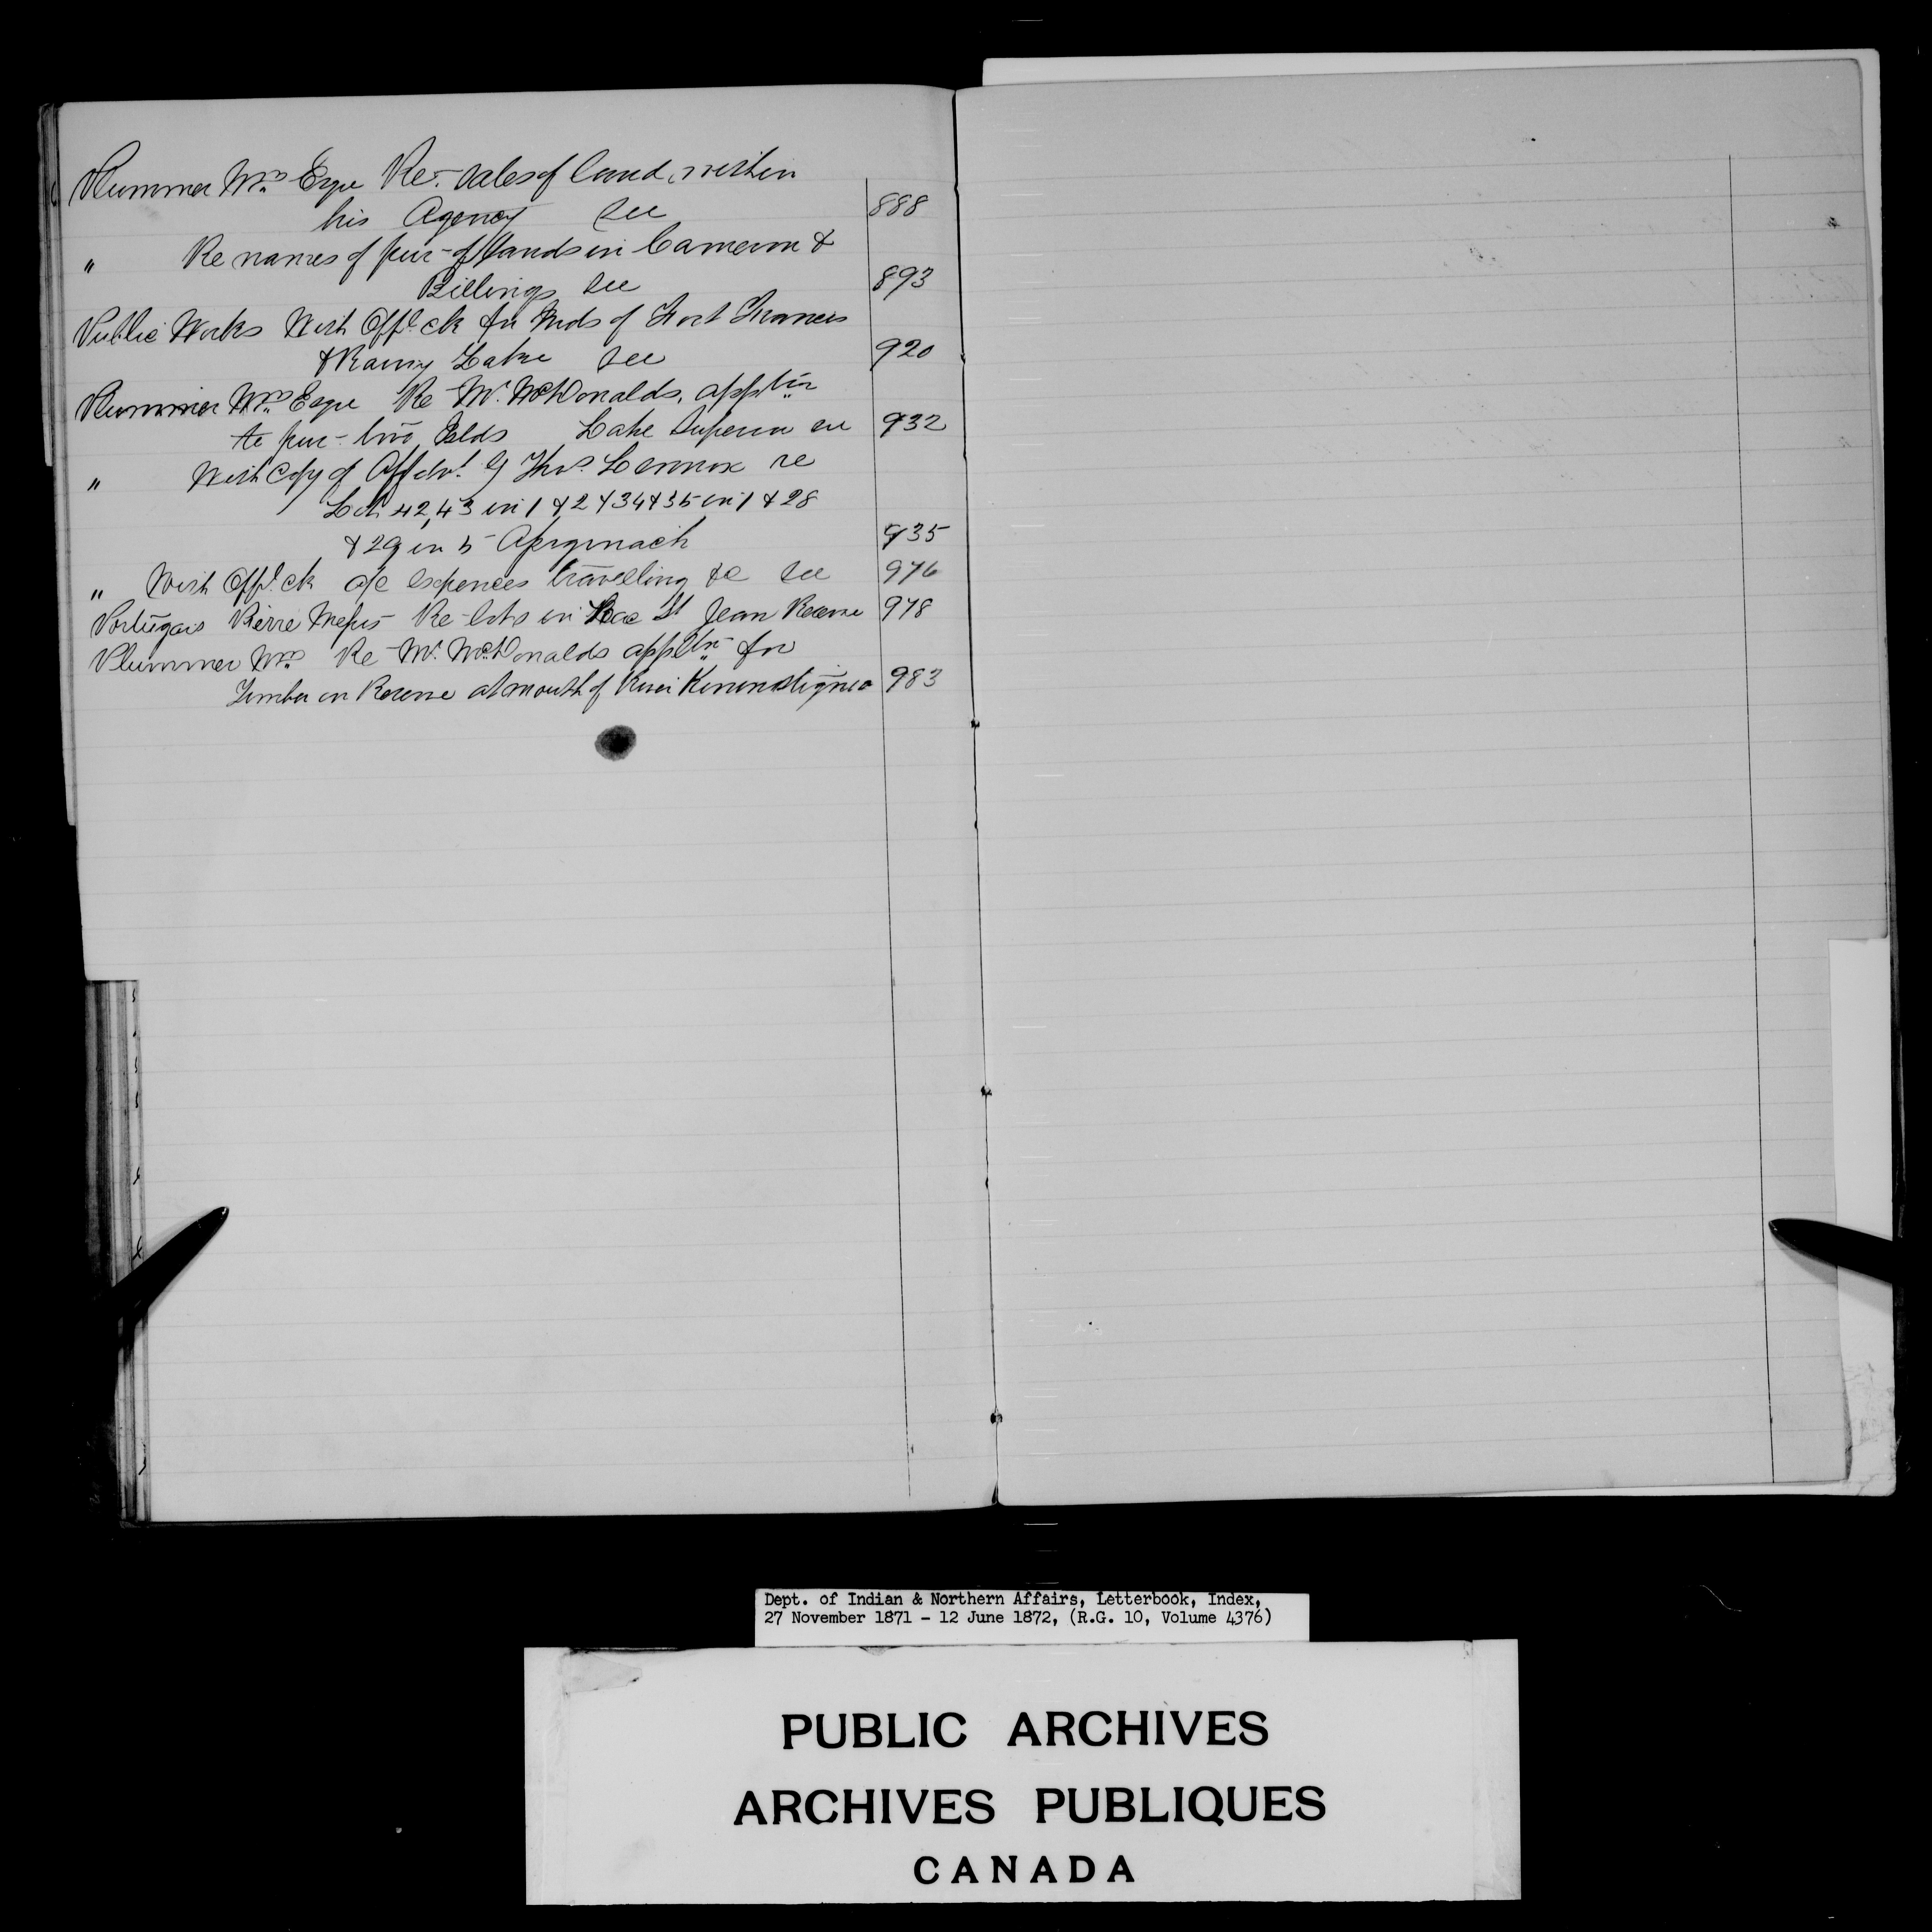 Plummer Wm Esqe Re- sales of land within
his Agency see 888
" Re names of pur- of lands in Cameron &
Billings see 893
Public Works With Offl. ck for Inds of Fort Frances
& Rainy Lake see 920
Plummer Wm Esqe Re Mr. McDonalds, applin
to pur- two Islds Lake Superior see 932
" With Copy of Affdvt. of Thos. Lennox re
Lots 42, 43 in 1 & 2 & 34 & 35 in 1 & 28
& 29 in 5 935
" With Offl. ck a/c expences travelling &c see 976
Portugais Pierre Re- lots in Lac St Jean Reserve 978
Plummer Wm Re Mr. McDonalds appltn for
Timber on Reserve at mouth of River 983
Dept. of Indian & Northern Affairs, Letterbook, Index,
27 November 1871 - 12 June 1872, (R.G. 10, Volume 4376)
PUBLIC ARCHIVES
ARCHIVES PUBLIQUES
CANADA